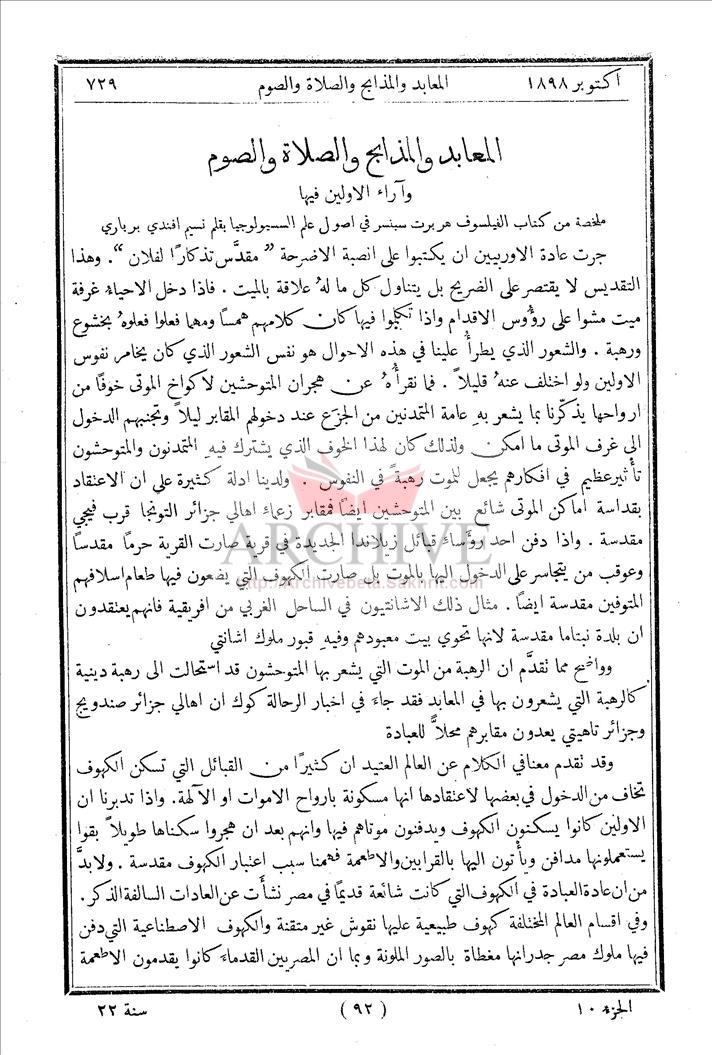 اكتوبر ١٨٩٨ المعابد والمذابح والصلاة والصوم ٧٢٩
المعابد والمذابح والصلاة والصوم
وآراء الاولين فيها
ملخصة من كتاب الفيلسوف هربرت سبنسر في اصول علم السسيولوجيا بقلم نسيم افندي برباري
جرت عادة الاوربيين ان يكتبوا على انصبة الاضرحة ” مقدَّس تذكارًا لفلان “. وهذا
التقديس لا يقتصر على الضريح بل يتناول كل ما لهُ علاقة بالميت . فاذا دخل الاحياءُ غرفة
ميت مشوا على رؤُوس الاقدام واذا تكلموا فيها كان كلامهم همسًا ومهما فعلوا فعلوهُ بخشوع
ورهبة . والشعور الذي يطرأُ علينا في هذه الاحوال هو نفس الشعور الذي كان يخامر نفوس
الاولين ولو اختلف عنهُ قليلاً . فما نقرأُهُ عن هجران المتوحشين لاكواخ الموتى خوفًا من
ارواحها يذكّرنا بما يشعر بهِ عامة المتمدنين من الجزع عند دخولهم المقابر ليلاً وتجنبهم الدخول
الى غرف الموتى ما امكن ولذلك كان لهذا الخوف الذي يشترك فيهِ المتمدنون والمتوحشون
تأثير عظيم في افكارهم يجعل للموت رهبةً في النفوس . ولدينا ادلة كثيرة على ان الاعتقاد
بقداسة اماكن الموتى شائع بين المتوحشين ايضًا فمقابر زعماء اهالي جزائر التونجا قرب فيجي
مقدسة . واذا دفن احد رؤَساء قبائل زيلاندا الجديدة في قرية صارت القرية حرمًا مقدسًا
وعوقب من يتجاسر على الدخول اليها بالموت بل صارت الكهوف التي يضعون فيها طعام اسلافهم
المتوفين مقدسة ايضًا . مثال ذلك الاشانتيون في الساحل الغربي من افريقية فانهم يعتقدون
ان بلدة نبتاما مقدسة لانها تحوي بيت معبودهم وفيهِ قبور ملوك اشانتي
وواضح مما تقدَّم ان الرهبة من الموت التي يشعر بها المتوحشون قد استحالت الى رهبة دينية
كالرهبة التي يشعرون بها في المعابد فقد جاءَ في اخبار الرحالة كوك ان اهالي جزائر صندويج
وجزائر تاهيتي يعدون مقابرهم محلاًّ للعبادة
وقد تقدم معنا في الكلام عن العالم العتيد ان كثيرًا من القبائل التي تسكن الكهوف
تخاف من الدخول في بعضها لاعتقادها انها مسكونة بارواح الاموات او الآلهة. واذا تدبرنا ان
الاولين كانوا يسكنون الكهوف ويدفنون موتاهم فيها وانهم بعد ان هجروا سكناها طويلاً بقوا
يستعملونها مدافن ويأتون اليها بالقرابين والاطعمة فهمنا سبب اعتبار الكهوف مقدسة . ولابدَّ
من ان عادة العبادة في الكهوف التي كانت شائعة قديمًا في مصر نشأَت عن العادات السالفة الذكر.
وفي اقسام العالم المختلفة كهوف طبيعية عليها نقوش غير متقنة والكهوف الاصطناعية التي دفن
فيها ملوك مصر جدرانها مغطاة بالصور الملونة وبما ان المصريين القدماءَ كانوا يقدمون الاطعمة
الجزء ١٠ (٩٢) سنة ٢٢
ARCHIVE
http://Archivebeta.Sakhrit.com